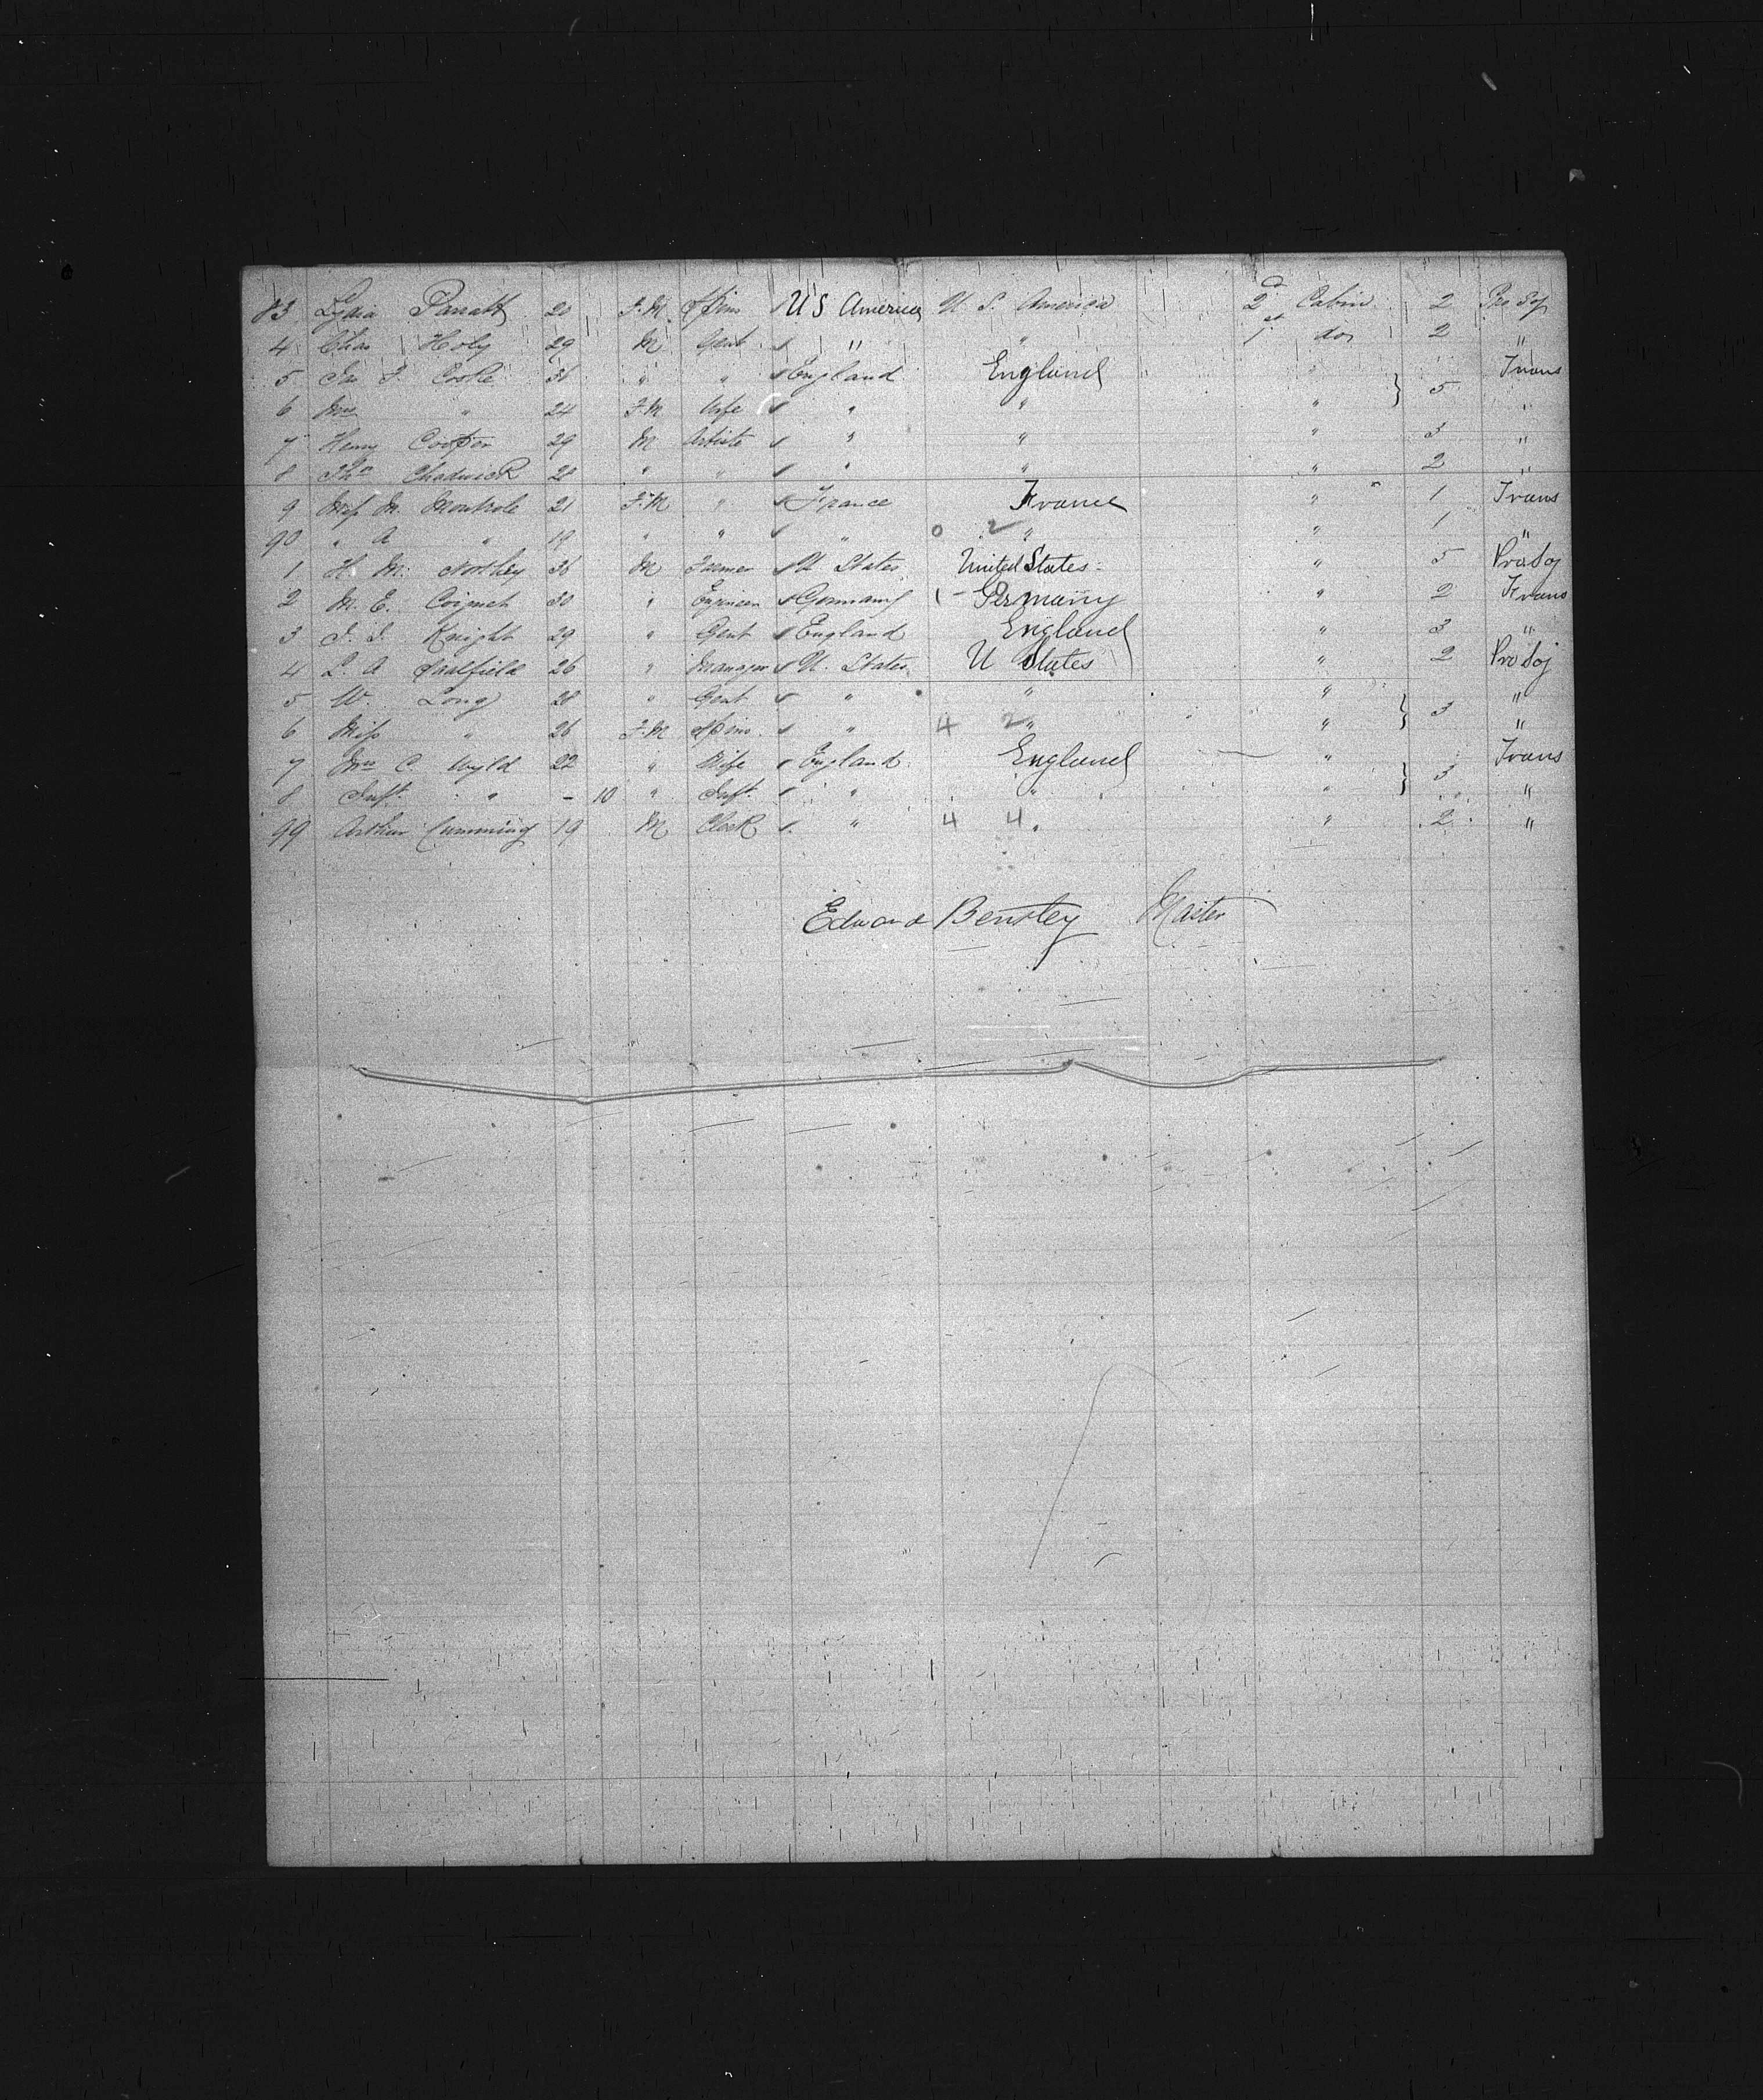 83 Lydia Parratt 20 F.M Spins U S America U. S. America 2d Cabin 2 Pro Soj
4 Chas Holy 29 M Gent " " 1st do 2 "
5 Jno Cooke 36 " " England England " Trans
6 Mrs " 24 F.M Wife " " " } 5 "
7 Henry Cooper 29 M Artiste " " " 3 "
8 Thos Chadwick 28 " " " " " 2 "
9 Miss M. 21 F.M " France France " 1 Trans
90 " A " 19 " " " 0 2 " " 1 "
1 H. M. Northey 36 M Farmer U States United States " 5 Pro Soj
2 M. E. 30 " Engineer Germany 1 - Germany " 2 Trans
3 Knight 29 " Gent England England " 3 "
4 L. A 26 " Manager U. States U States " 2 Pro Soj
5 W. Long 28 " Gent " " " "
6 Miss " 26 F.M Spins " 4 2 " " } 3 "
7 Mrs C. Wyld 22 " Wife England England " Trans
8 Inft " - 10 " Inft " " " } 3 "
99 Arthur Cumming 19 M Clerk " 4 4 " " 2 "
Edward Bentley Master